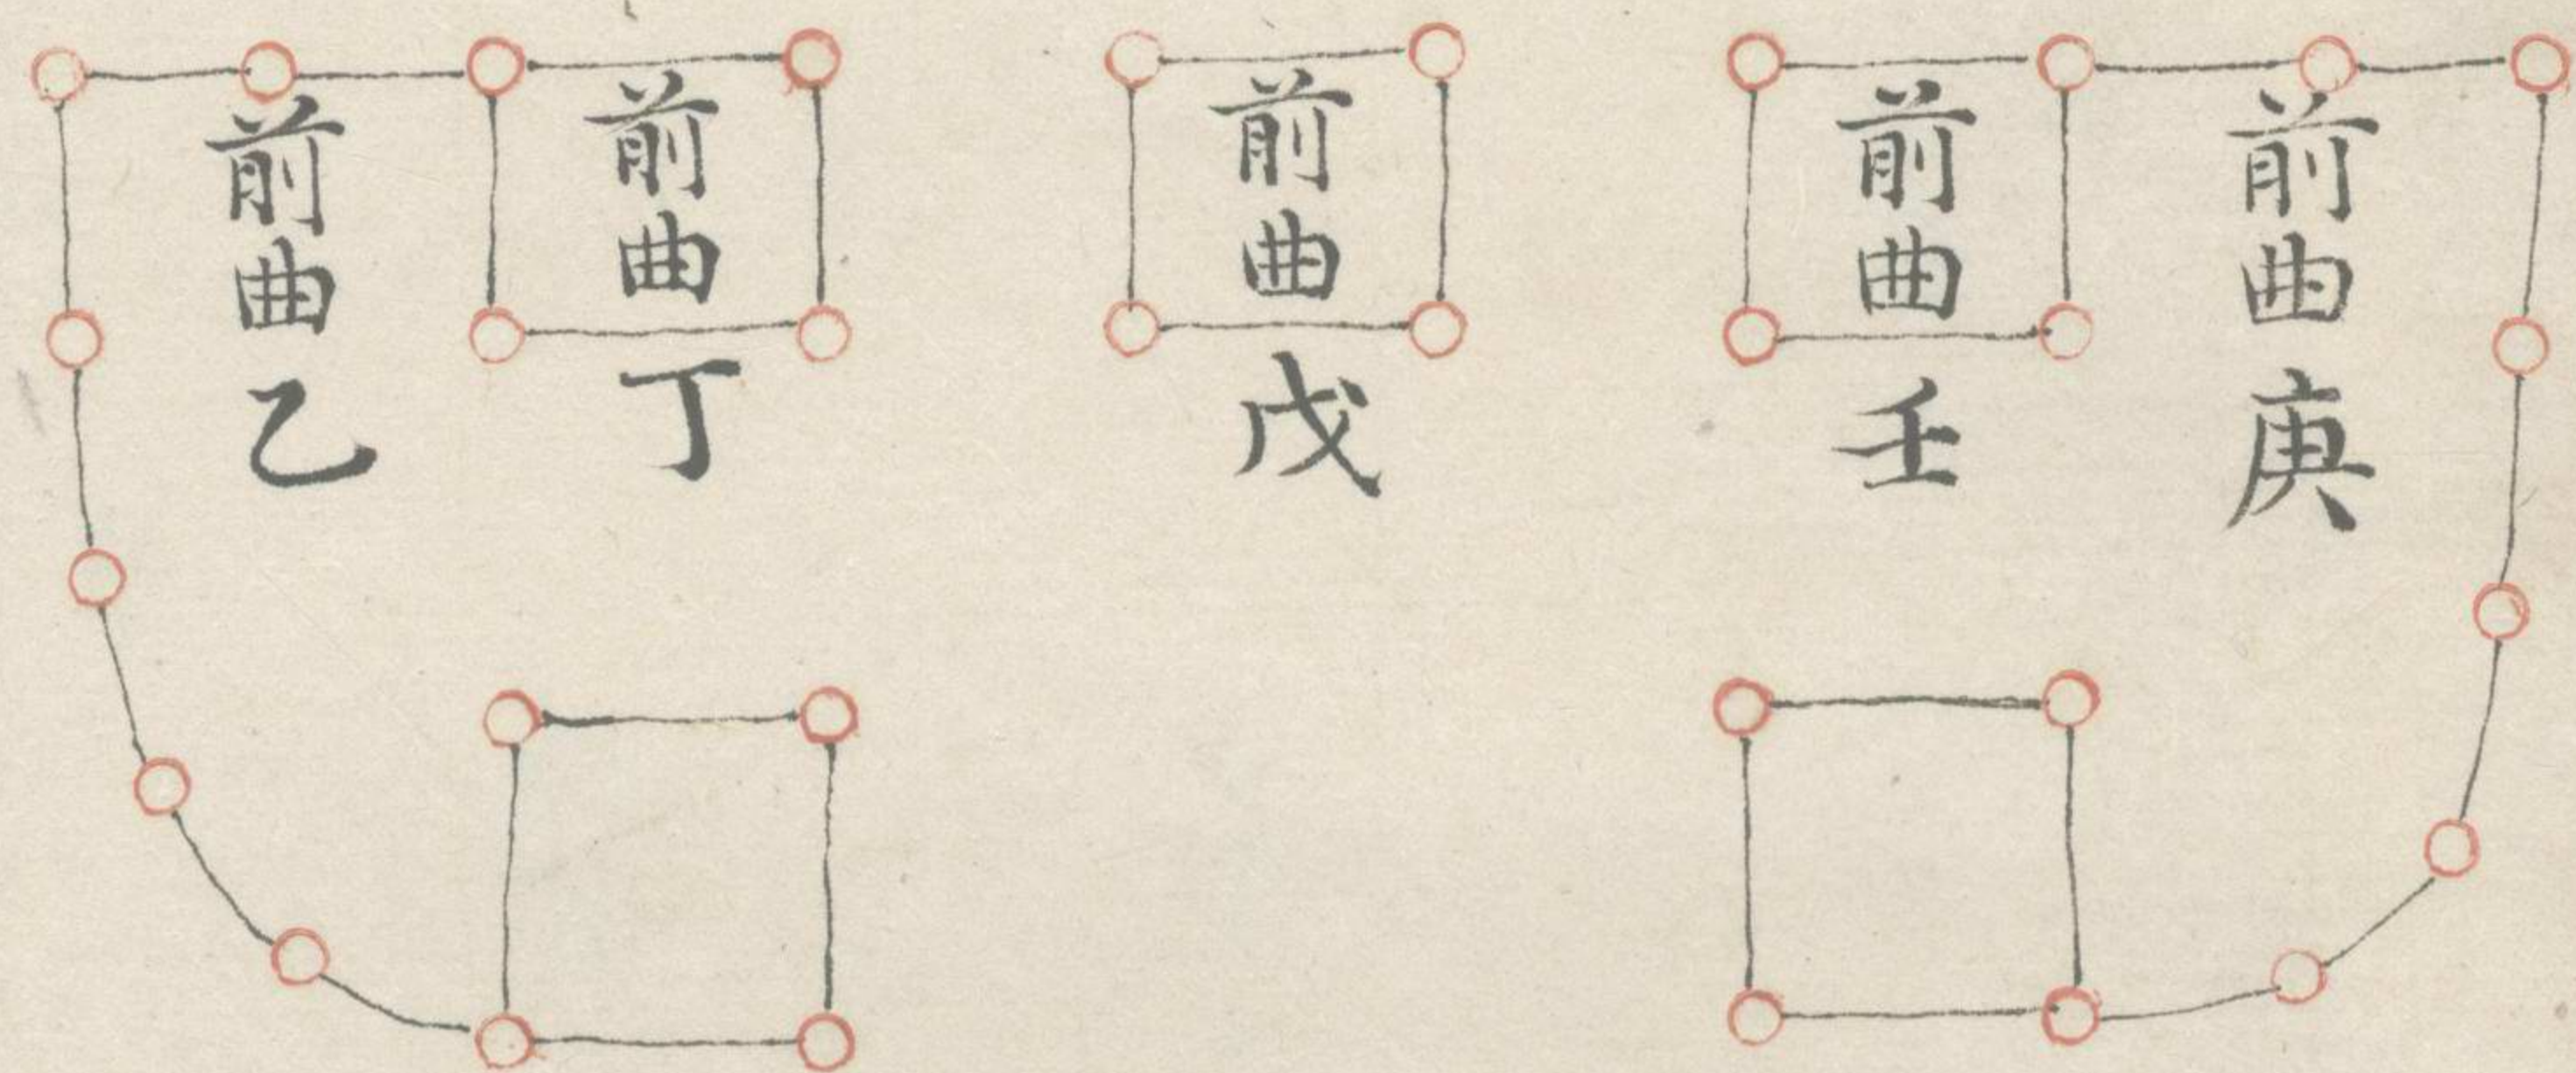 前曲庚
前曲壬
前曲戊
前曲丁
前曲乙